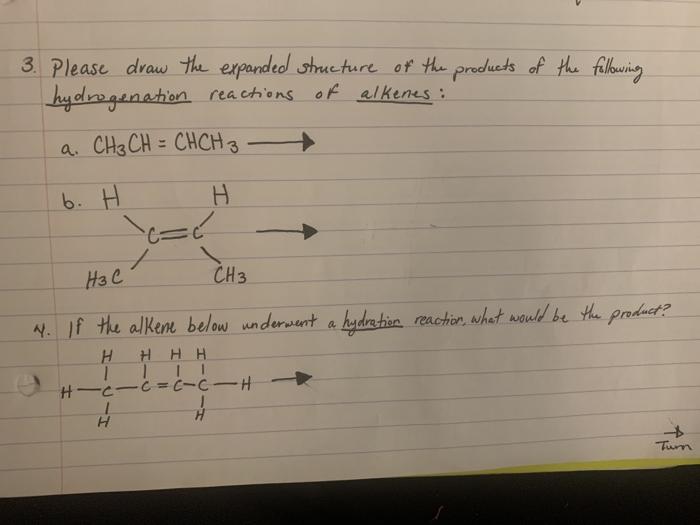 3. Please draw the expanded structure of the products of the following
hydrogenation reactions of alkenes:
a. CH3CH = CHCH3 ⟶
b. H H
C=C ⟶
H3C CH3
4. If the alkene below underwent a hydration reaction, what would be the product?
H H H H
H-C-C=C-C-H ⟶
H H
→
Turn